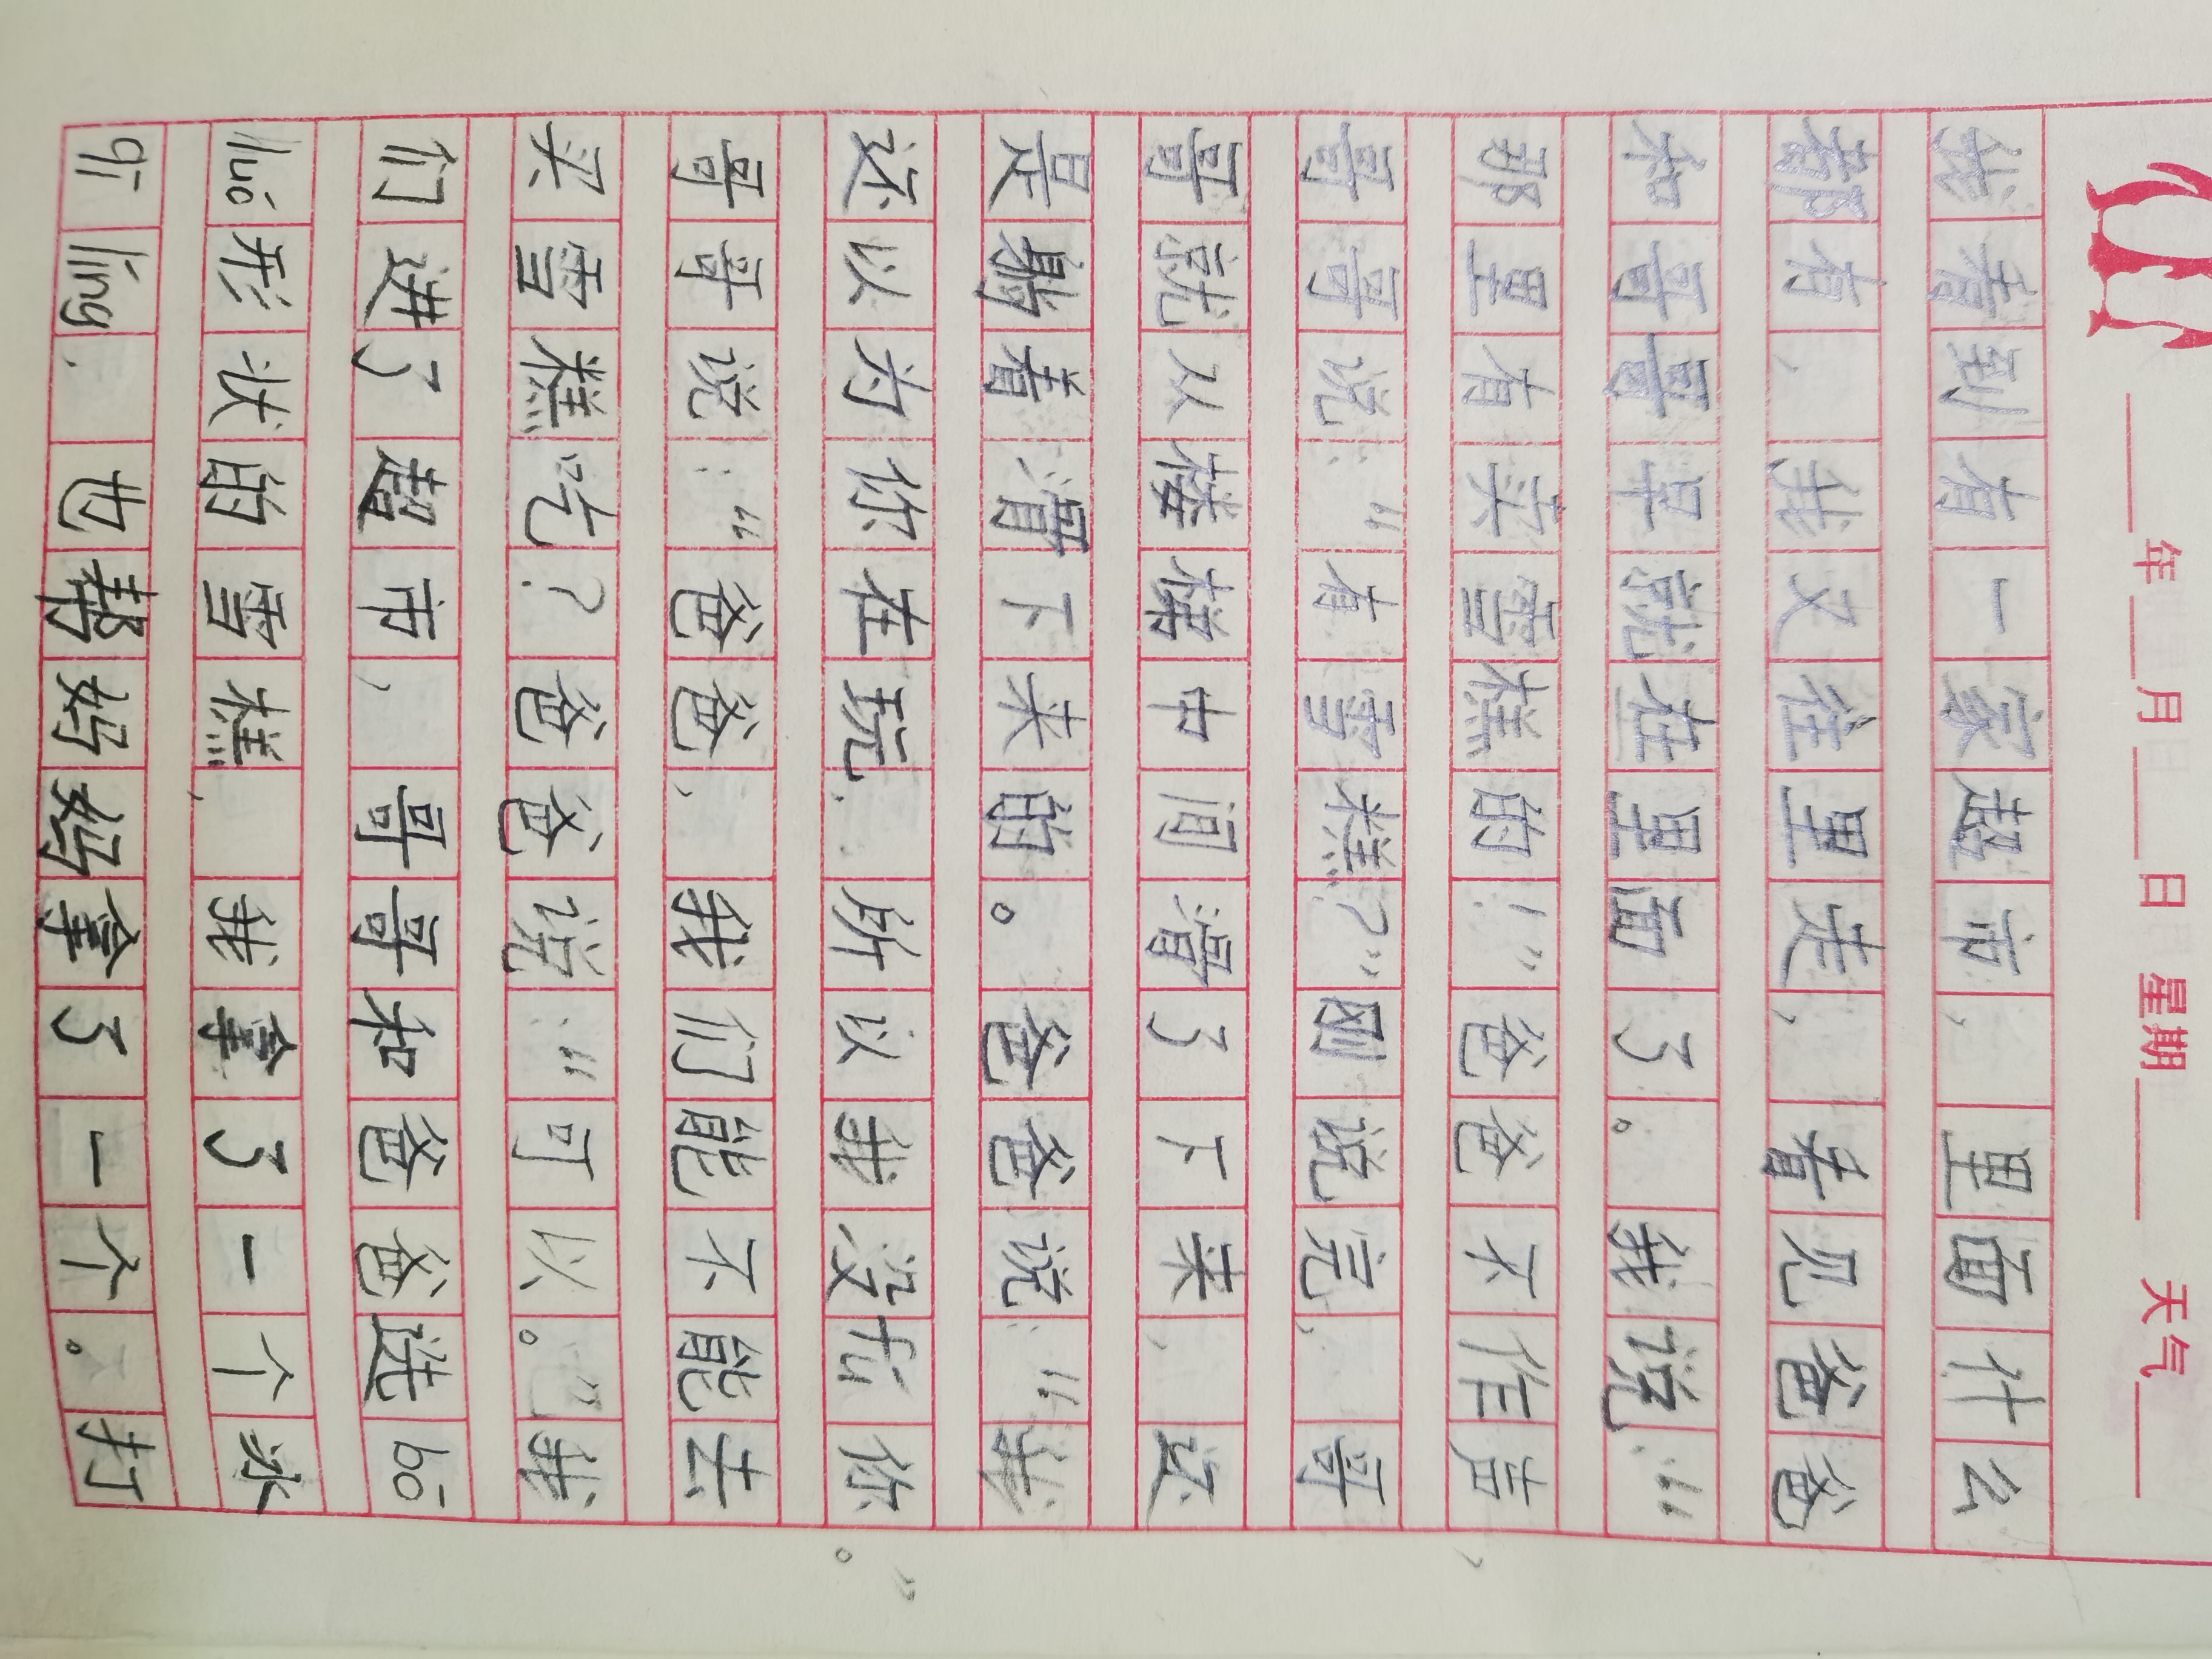 年 月 日 星期 天气
我看到有一家超市，里面什么
都有，我又往里走，看见爸爸
和哥哥早就在里面了。我说：“
那里有卖雪糕的！”爸爸不作声，
哥哥说：“有雪糕？”刚说完，哥
哥就从楼梯中间滑了下来，还
是躺着滑下来的。爸爸说：“我
还以为你在玩，所以我没fú你。”
哥哥说：“爸爸，我们能不能去
买雪糕吃？爸爸说：“可以。”我
们进了超市，哥哥和爸爸选bō
luó形状的雪糕，我拿了一个冰
qí líng，也帮妈妈拿了一个。打